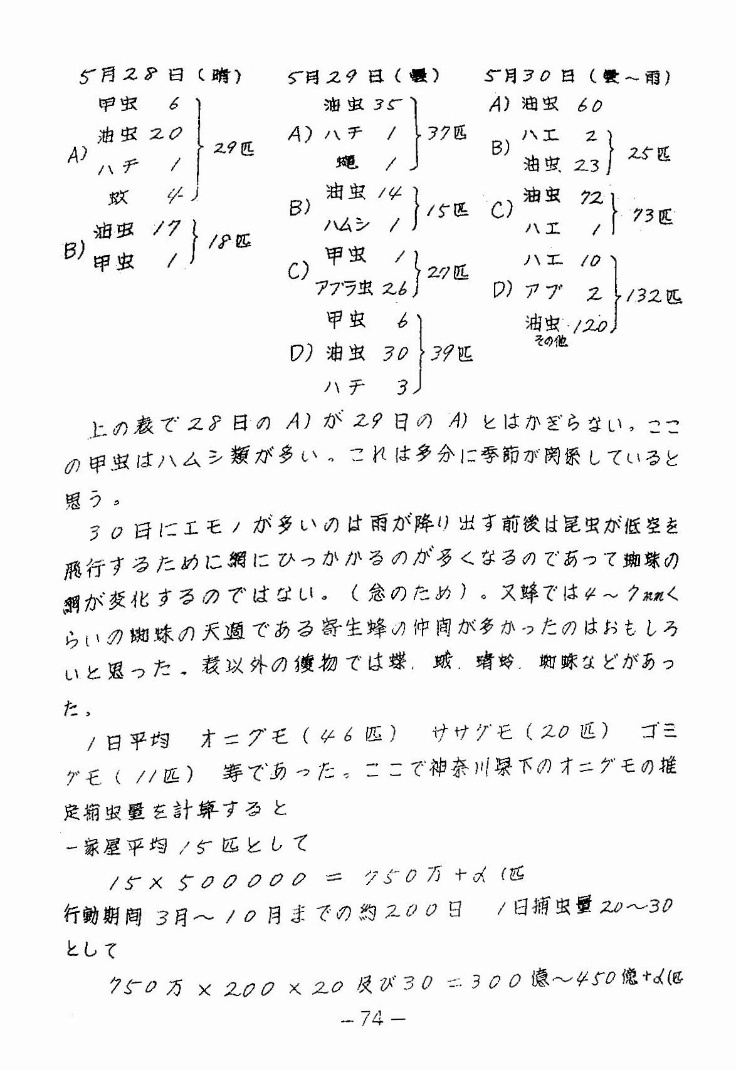 5月28日(晴)
A)
甲虫 6
油虫 20
ハチ 1
蚊 4
29匹
B)
油虫 17
甲虫 1
18匹
5月29日(曇)
A)
油虫 35
ハチ 1
蠅 1
37匹
B)
油虫 14
ハムシ 1
15匹
C)
甲虫 1
アブラ虫 26
27匹
D)
甲虫 6
油虫 30
ハチ 3
39匹
5月30日(曇～雨)
A) 油虫 60
B)
ハエ 2
油虫 23
25匹
C)
油虫 72
ハエ 1
73匹
D)
ハエ 10
アブ 2
油虫 120
その他
132匹
上の表で28日のA)が29日のA)とはかぎらない。ここ
の甲虫はハムシ類が多い。これは多分に季節が関係していると
思う。
30日にエモノが多いのは雨が降り出す前後は昆虫が低空を
飛行するために網にひっかかるのが多くなるのであって蜘蛛の
網が変化するのではない。(念のため)。又蜂では4～7mmく
らいの蜘蛛の天適である寄生蜂の仲間が多かったのはおもしろ
いと思った。表以外の獲物では蝶、蛾、蜻蛉、蜘蛛などがあっ
た。
1日平均 オニグモ(46匹) ササグモ(20匹) ゴミ
グモ(11匹) 等であった。ここで神奈川県下のオニグモの推
定捕虫量を計算すると
一家屋平均15匹として
15×500000=750万+α(匹
行動期間3月～10月までの約200日 1日捕虫量20～30
として
750万×200×20及び30=300億～450億+α(匹
—74—